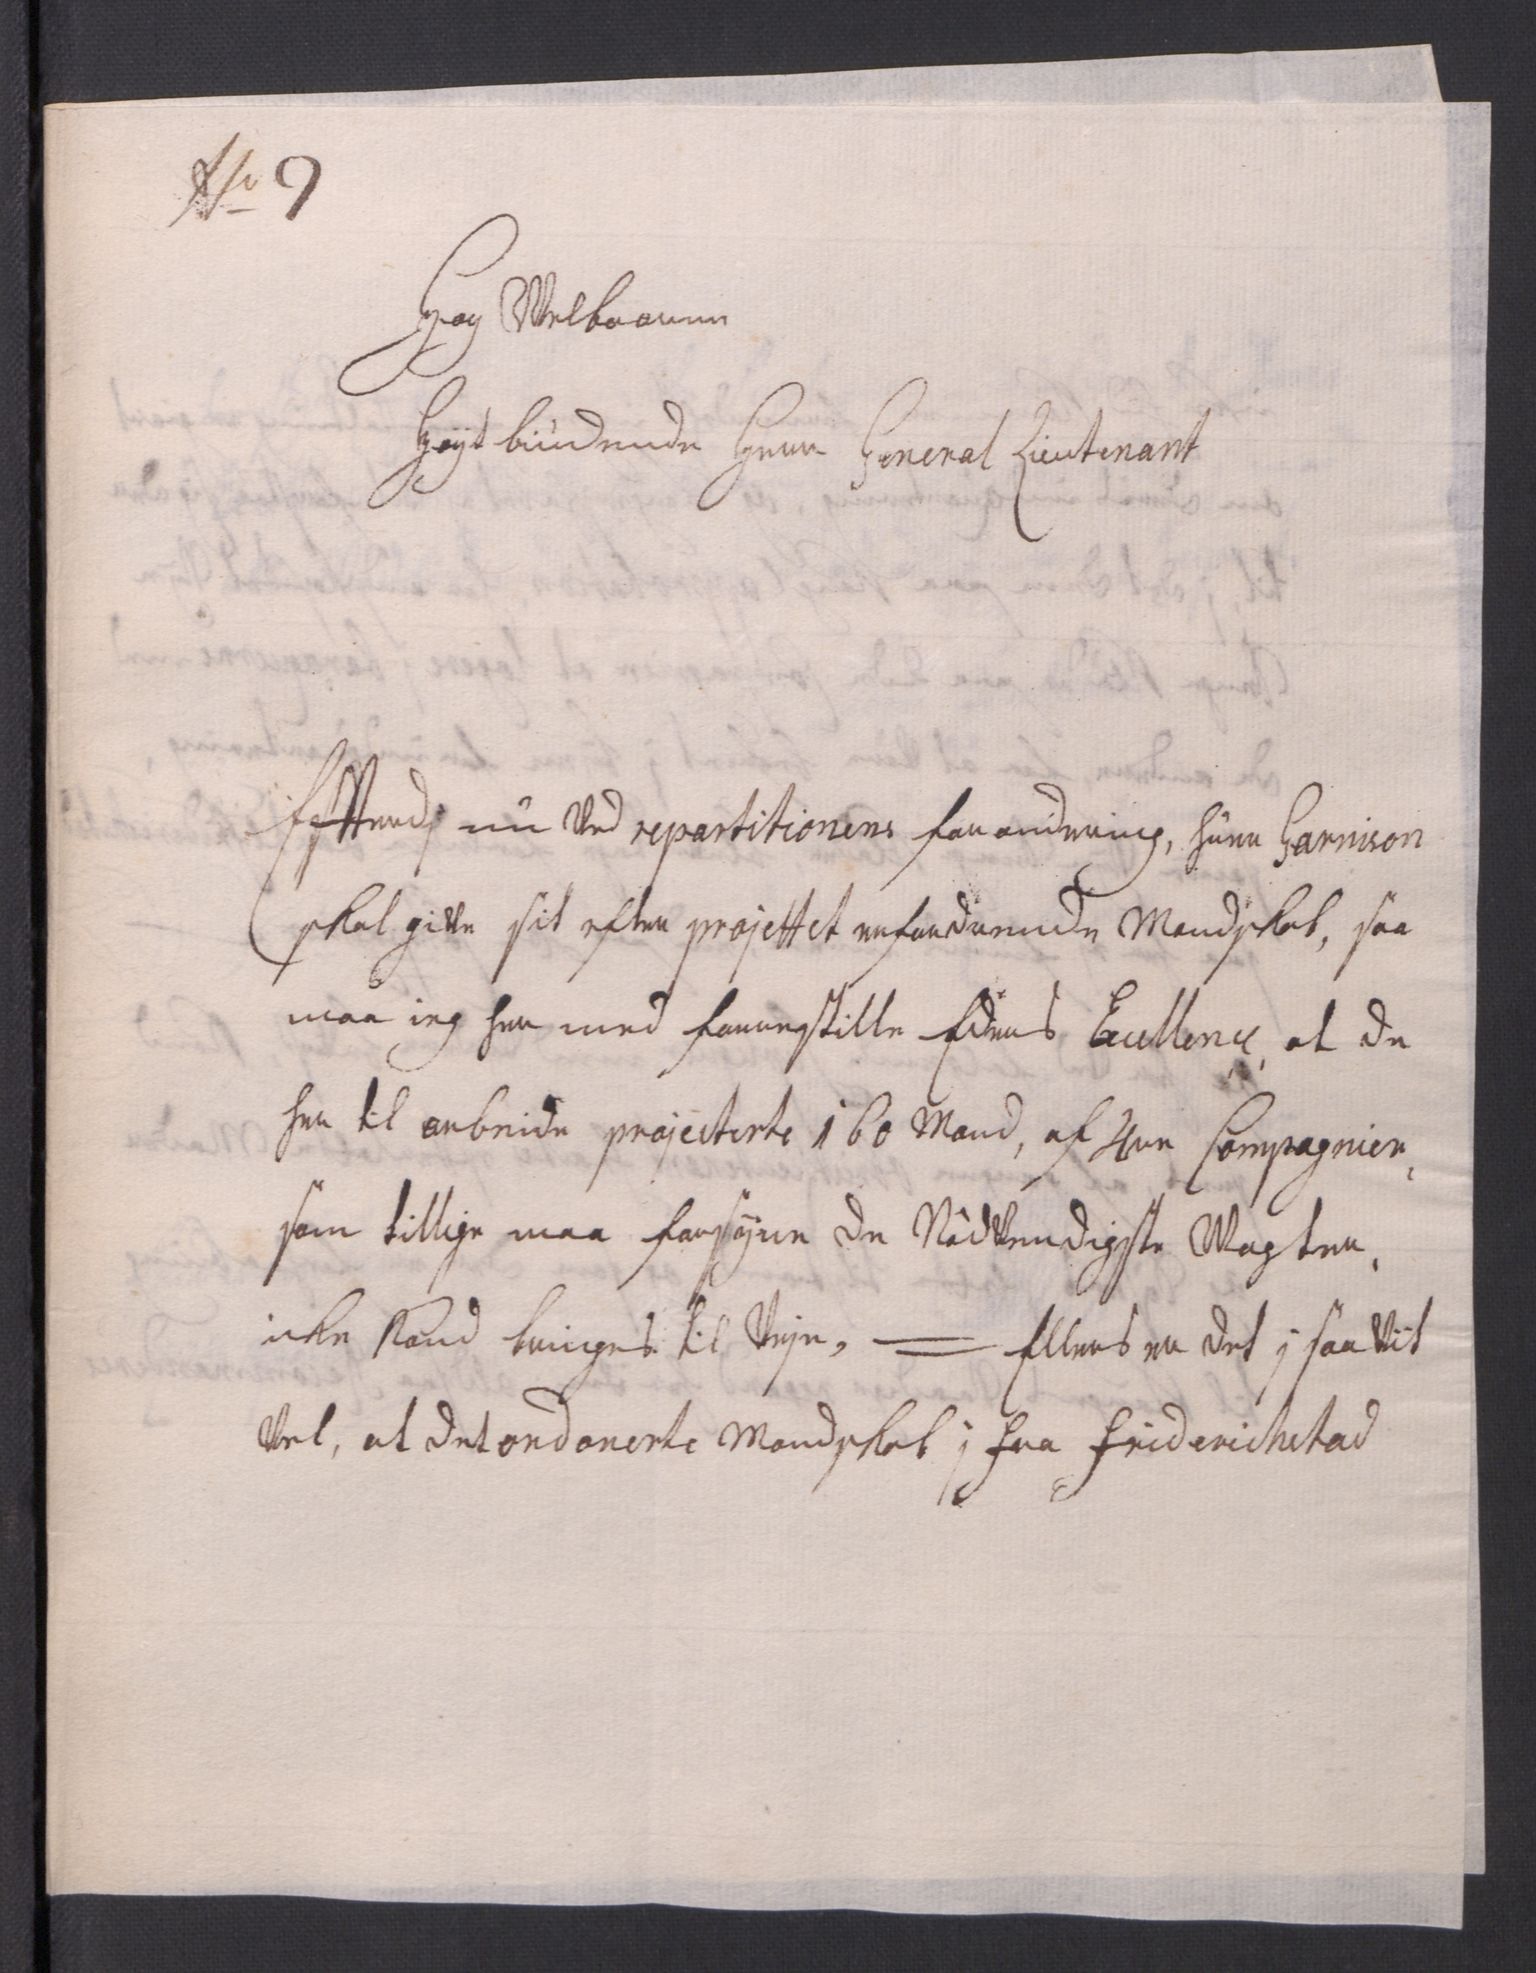 No 9
Høy Welbaarne
Høyt biüdende Herre General Lieutenant
Efftterdj nü Ved repartitionens forandring, hüer Garnison
skal give sit efter projettet udfordrende Mandskab, saa
maa ieg her med forrestille Eders Excellence, at de
her til arbeide projecterte 160 Mand, af 4re Compagnier,
som tillige maa forsÿne de Nödvendigste Wagter,
icke kand bringes til Veje, — Ellers er det j saa Vit
Vel, at det ordonerte Mandskab j fra Friderichstad